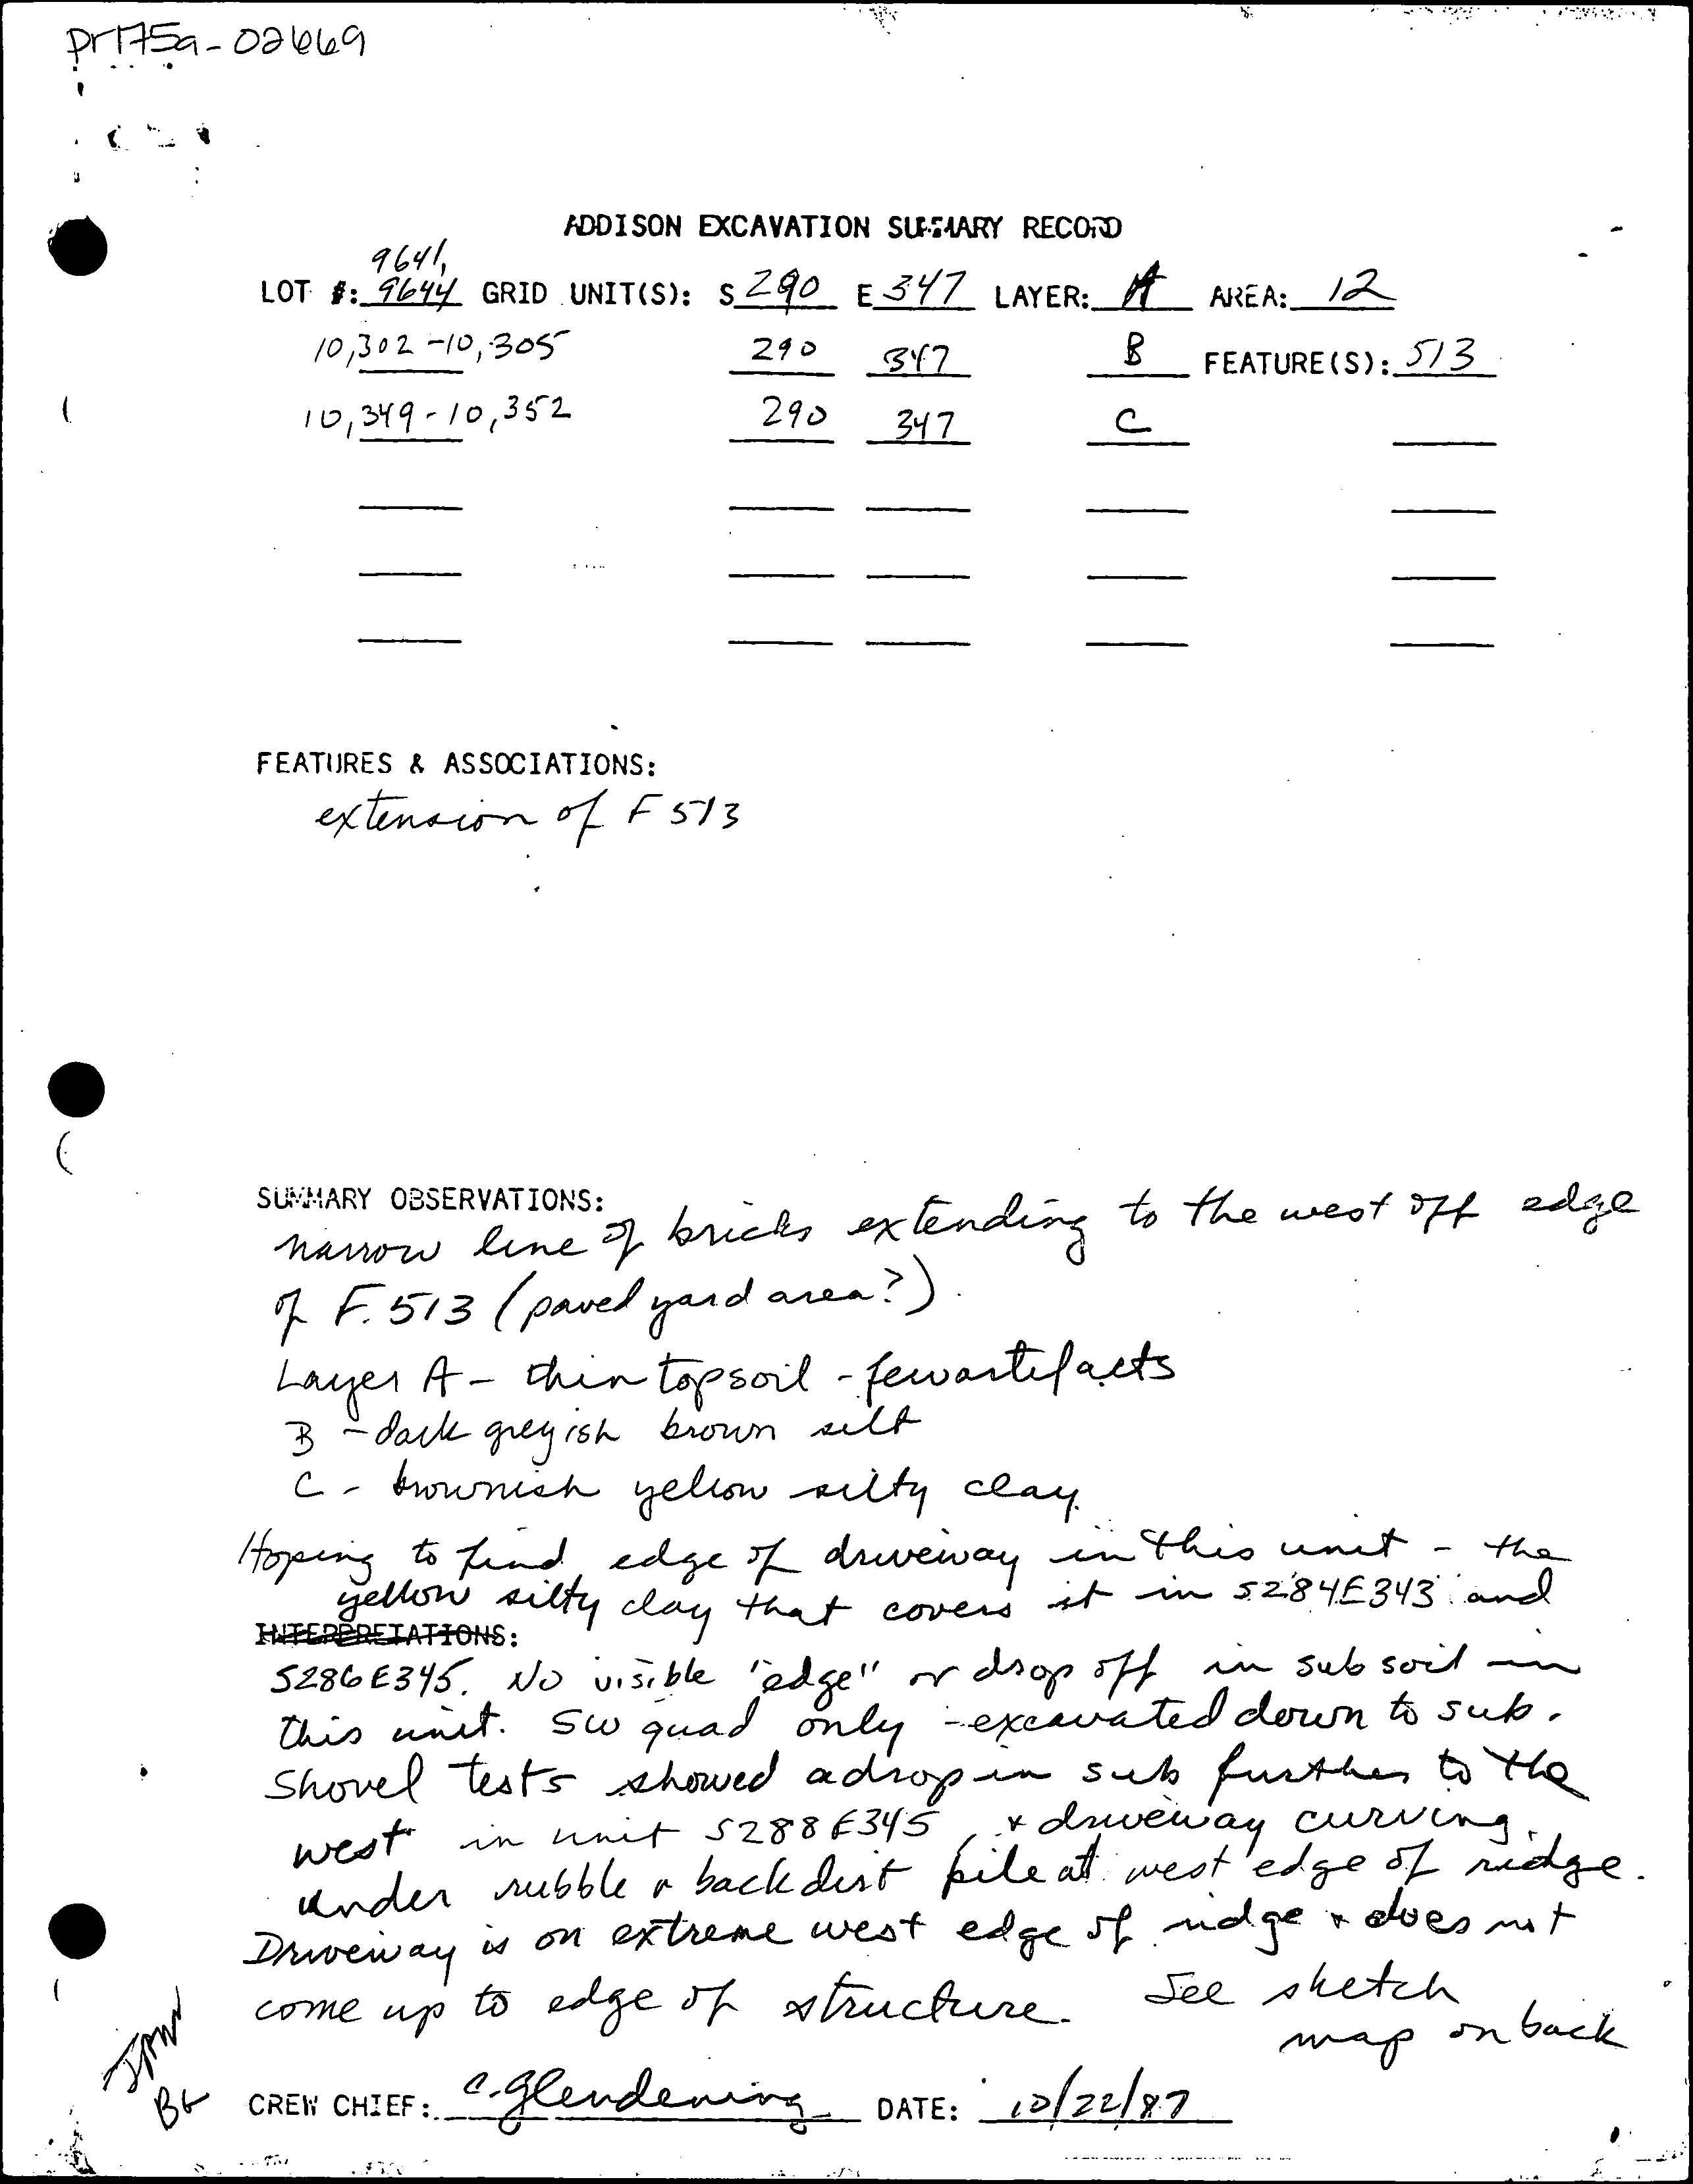 pr175a-02669
ADDISON EXCAVATION SUMMARY RECORD
9641,
LOT #: 9644 GRID UNIT(S): S 290 E 347 LAYER: A AREA: 12
10,302-10,305 290 347 B FEATURE(S): 513
10,349-10,352 290 347 C
FEATURES & ASSOCIATIONS:
extension of F 513
SUMMARY OBSERVATIONS:
narrow line of bricks extending to the west off edge
of F. 513 (paved yard area?)
Layer A - thin topsoil - few artifacts
B - dark greyish brown silt
C - brownish yellow silty clay
Hoping to find edge of driveway in this unit - the
yellow silty clay that covers it in S284E343 and
INTERPRETATIONS:
S286E345. No visible "edge" or drop off in subsoil in
this unit. SW quad only - excavated down to sub.
Shovel tests showed a drop in sub further to the
west in unit S288E345, + driveway curving
under rubble + backdirt pile at west edge of ridge.
Driveway is on extreme west edge of ridge + does not
come up to edge of structure. See sketch
map on back
JPW
BG
CREW CHIEF: C. Glendening DATE: 10/22/87